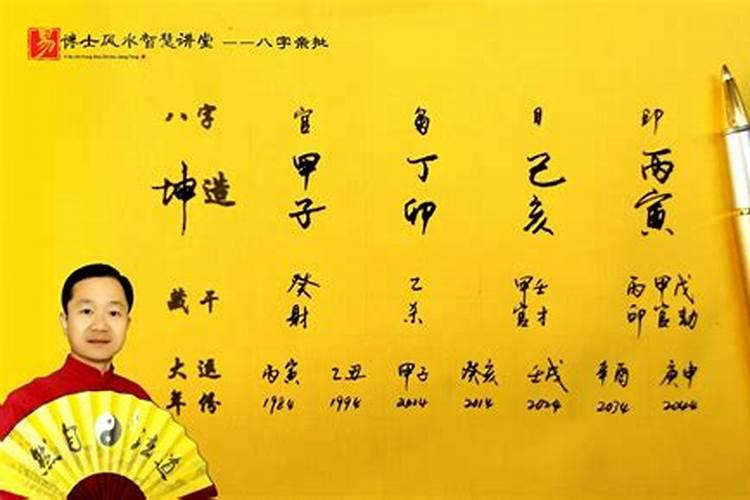 易 博士风水智慧讲堂 ——八字亲批
八字 官 枭 日 印
坤造 甲 丁 己 丙
子 卯 亥 寅
藏干 癸 乙 甲壬 丙甲戊
财 杀 官才 印官劫
大运 丙寅 乙丑 甲子 癸亥 壬戌 辛酉 庚申
年份 1984 1994 2004 2014 2024 2034 2044
然自法道